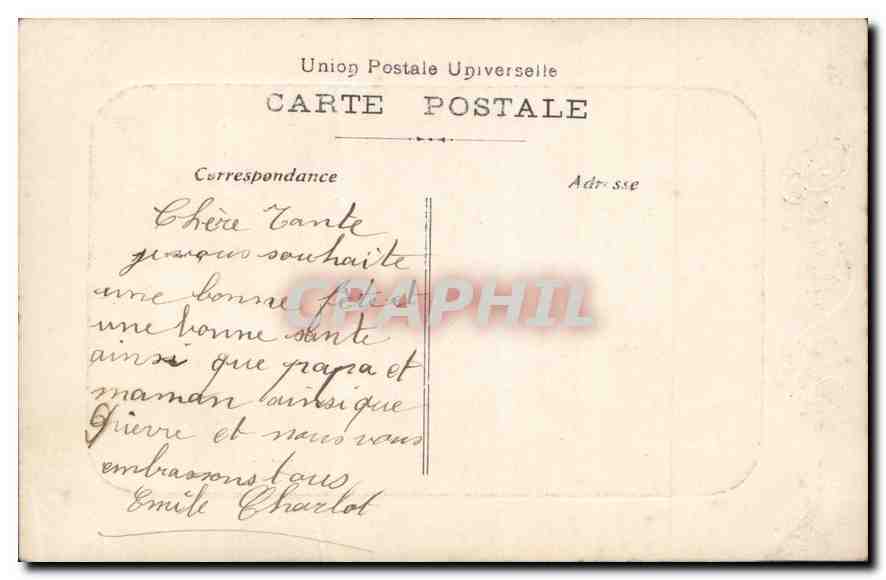 Union Postale Universelle
CARTE POSTALE
Correspondance
Adresse
Chère Tante
je vous souhaite
une bonne fête et
une bonne sante
ainsi que papa et
maman ainsi que
Pierre et nous vous
embrassons tous
Emile Charlot
CPAPHIL